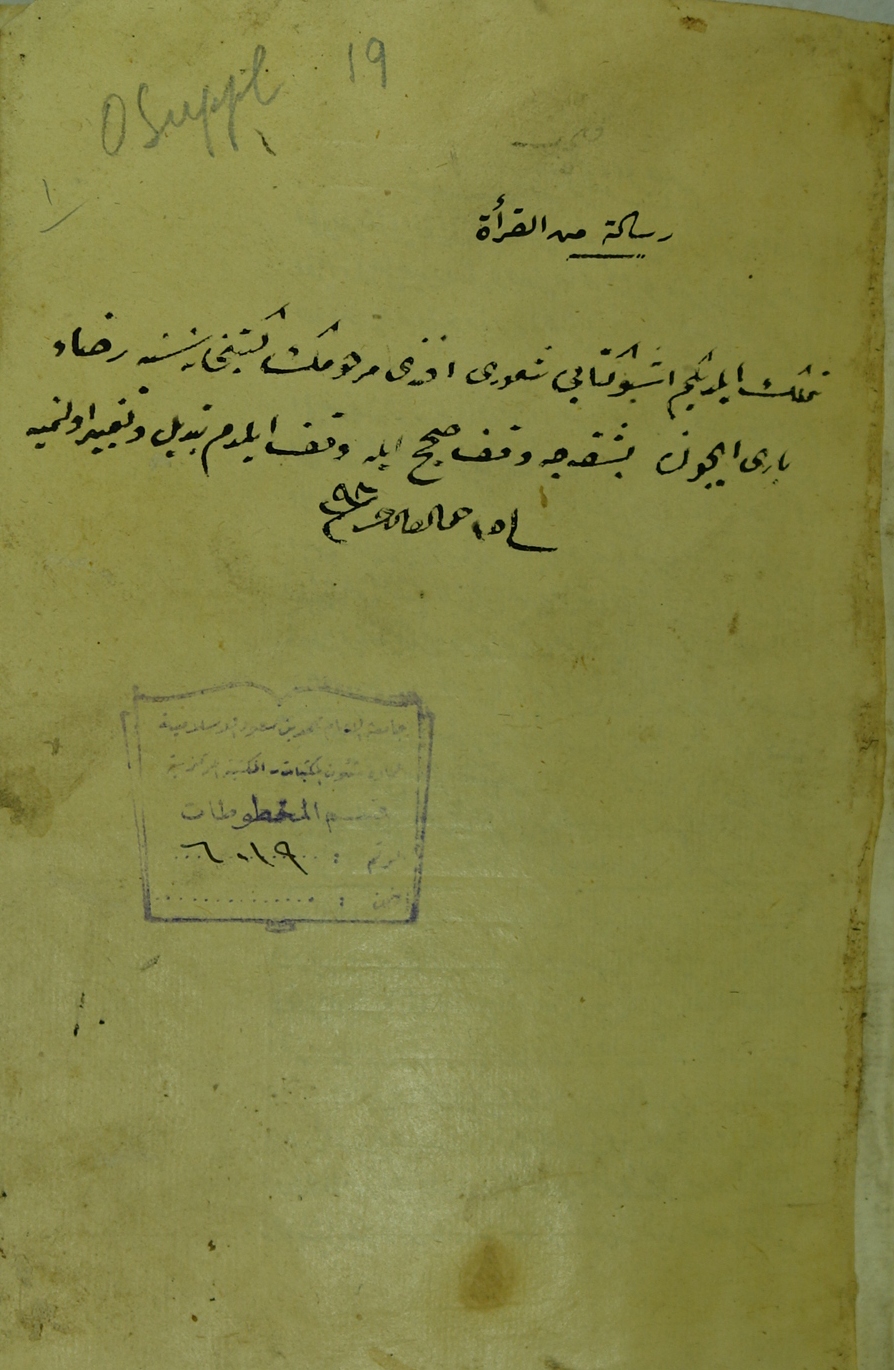 O Suppl 19
١
رسالة من القرأة
تملك ايلديكم اشبو كتابي شعورى افندى مرحومك كتبخانه سنه رضاء
بارى ايچون بشقه جه وقف صحيح ايله وقف ايلدم تبديل وتغيير اولنميه
جامعة الإمام محمد بن سعود الإسلامية
عمادة شؤون المكتبات - المكتبة المركزية
قسم المخطوطات
الرقم : ٦٠١٩